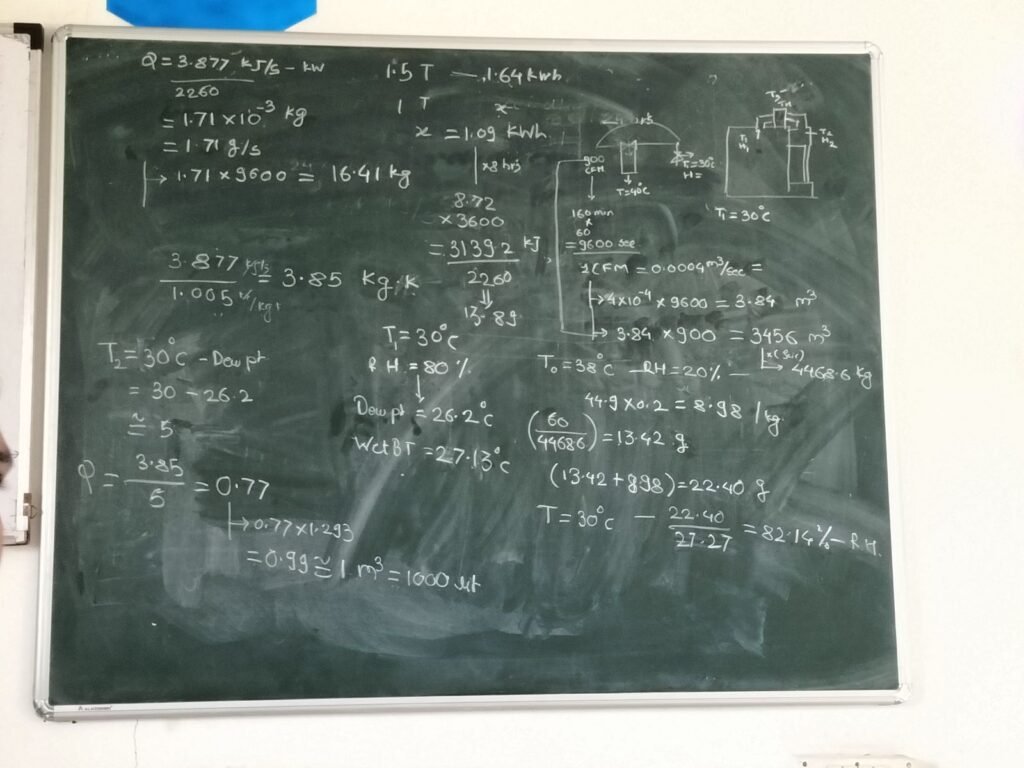 Q = 3.877 kJ/s - kW
2260
= 1.71 × 10⁻³ kg
= 1.71 g/s
→ 1.71 × 9600 = 16.41 kg
3.877 kJ/s
1.005
= 3.85 Kg·K
T₂ = 30°C - Dew pt
= 30 - 26.2
≅ 5
Q = 3.85 / 5 = 0.77
→ 0.77 × 1.293
= 0.99 ≅ 1 m³ = 1000 lit
1.5 T — 1.64 kWh
1 T x
x = 1.09 KWh
×8 hrs
8.72
×3600
= 31392 kJ
2260
⇓
13.89
T₁ = 30°C
RH = 80 %
↓
Dew pt = 26.2°C
Wet BT = 27.13°C
900
CFM
T = 40°C
T = 30°C
H =
160 min
×
60
= 9600 sec
1 CFM = 0.0004 m³/sec =
→ 4 × 10⁻⁴ × 9600 = 3.84 m³
→ 3.84 × 900 = 3456 m³
→ 4468.6 Kg
T₀ = 38°C — RH = 20% —
44.9 × 0.2 = 8.98 /kg
(60 / 44686) = 13.42 g
(13.42 + 898) = 22.40 g
T = 30°C — 22.40 / 27.27 = 82.14% - RH.
T₁
H₁
T₂
H₂
T₁ = 30°C